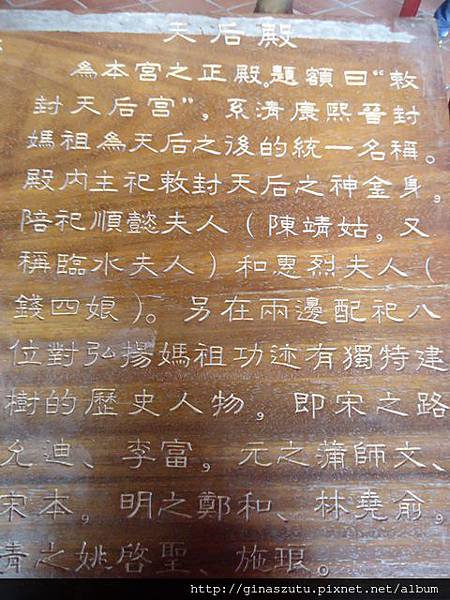 天后殿
為本宮之正殿。題額曰“敕
封天后宮”，系清康熙晉封
媽祖為天后之後的統一名稱。
殿內主祀敕封天后之神金身，
陪祀順懿夫人（陳靖姑，又
稱臨水夫人）和惠烈夫人（
錢四娘）。另在兩邊配祀八
位對弘揚媽祖功迹有獨特建
樹的歷史人物，即宋之路
允迪、李富，元之蒲師文、
宋本，明之鄭和、林堯俞，
青之姚啓聖、施琅。
http://ginaszutu.pixnet.net/album